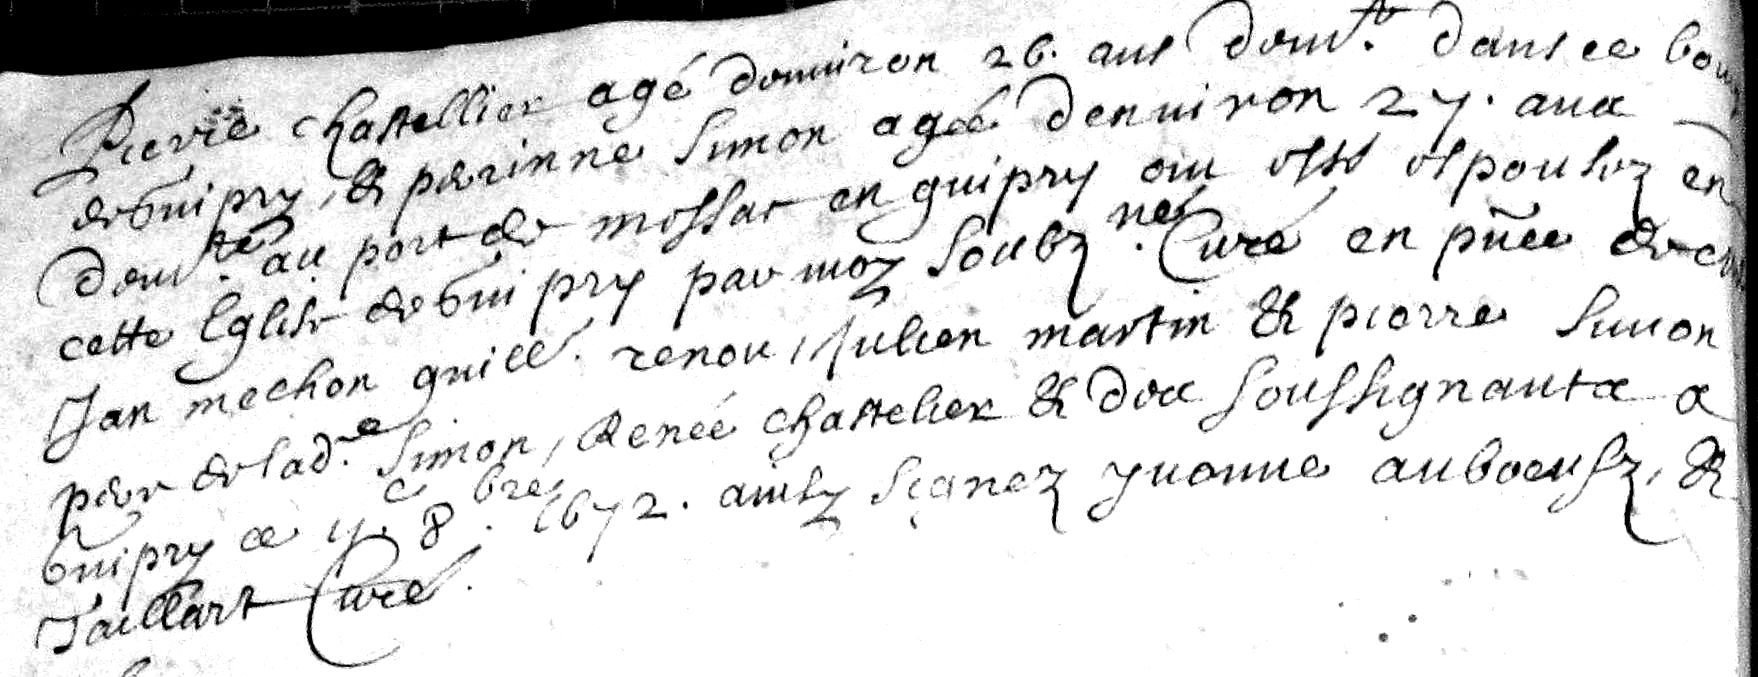 Pierre chastellier agé denuiron 26. ans dom.t dans ce bou
de Guipry, & perinne Simon agée denuiron 27. ans
dom.te au port de messac en guipry ont esté espousez en
cette Eglise de Guipry par moy soubz.né Curé en pñce de
Jan mechon guill. renou, Julien martin & pierre Simon
pere de lad.e Simon, Renée chastelier & des soussignants a
Guipry ce y.e 8.bre 1672. ainsy signez yuonne auboeufz, &
Taillart Curé.